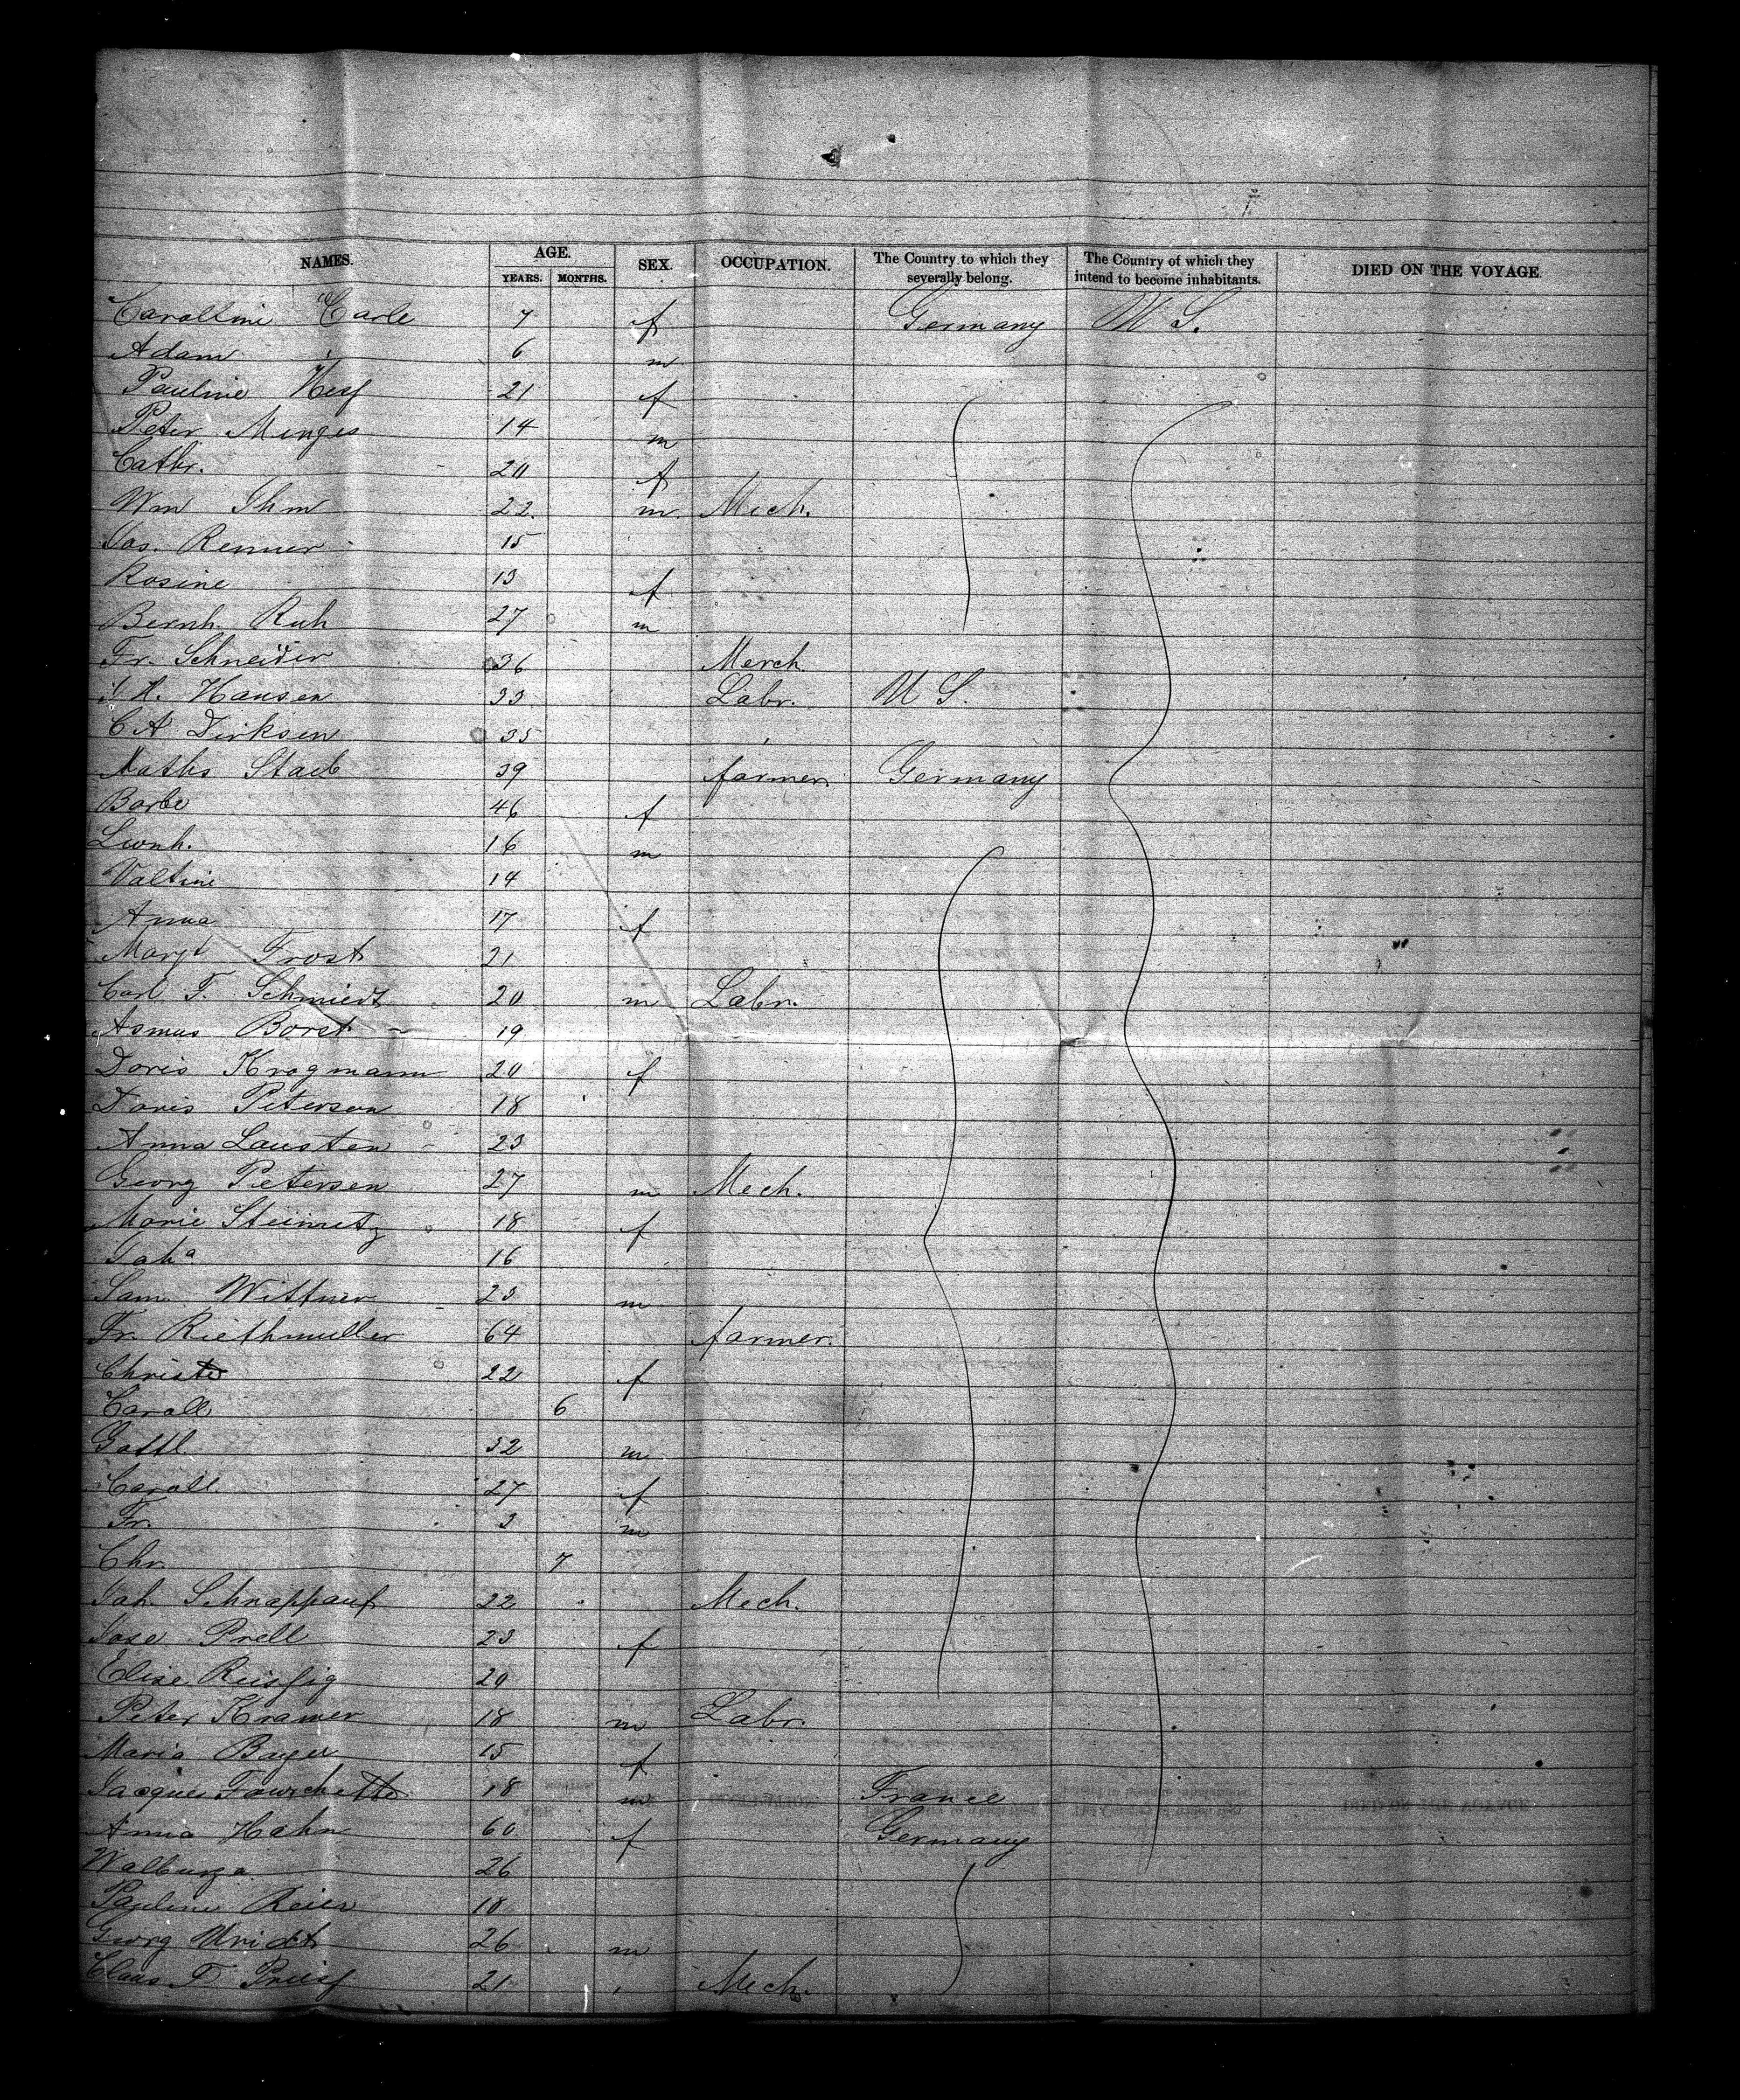 NAMES. AGE. YEARS. MONTHS. SEX. OCCUPATION. The Country to which they severally belong. The Country of which they intend to become inhabitants. DIED ON THE VOYAGE.
Carolline Carle 7 f Germany U S.
Adam 6 m
Pauline 21 f
Peter Minges 14 m
Cathr. 20 f
Wm Ihm 22 m Mech.
Jos. Renner 15
Rosine 13 f
Bernh. Ruh 27 m
Fr. Schneider 36 Merch
J H. Hansen 33 Labr. U S.
C A Dirksen 35
Maths Staib 39 farmer Germany
Barbe 46 f
Leonh. 16 m
Valtine 14
Anna 17 f
Margt Frost 21
Carl F. Schmiedt 20 m Labr.
Asmus Boret 19
Doris Krogmann 20 f
Doris Petersen 18
Anna Lausten 23
Georg Petersen 27 m Mech.
Marie Steinmetz 18 f
Joha 16
Sam Wittner 23 m
Fr. Riethmuller 64 farmer.
Christe 22 f
Caroll 6
Gottl 32 m
Caroll. 27 f
Fr. 3 m
Chr. 7
Joh. Schnappauf 22 Mech.
Jose Prell 23 f
Elise Reissig 20
Peter Kramer 18 m Labr.
Maria Bayer 15 f
Jacques Fourchette 18 m France
Anna Hahn 60 f Germany
Walburga 26
Pauline Reier 18
Georg 26 m
Claus F 21 Mech.